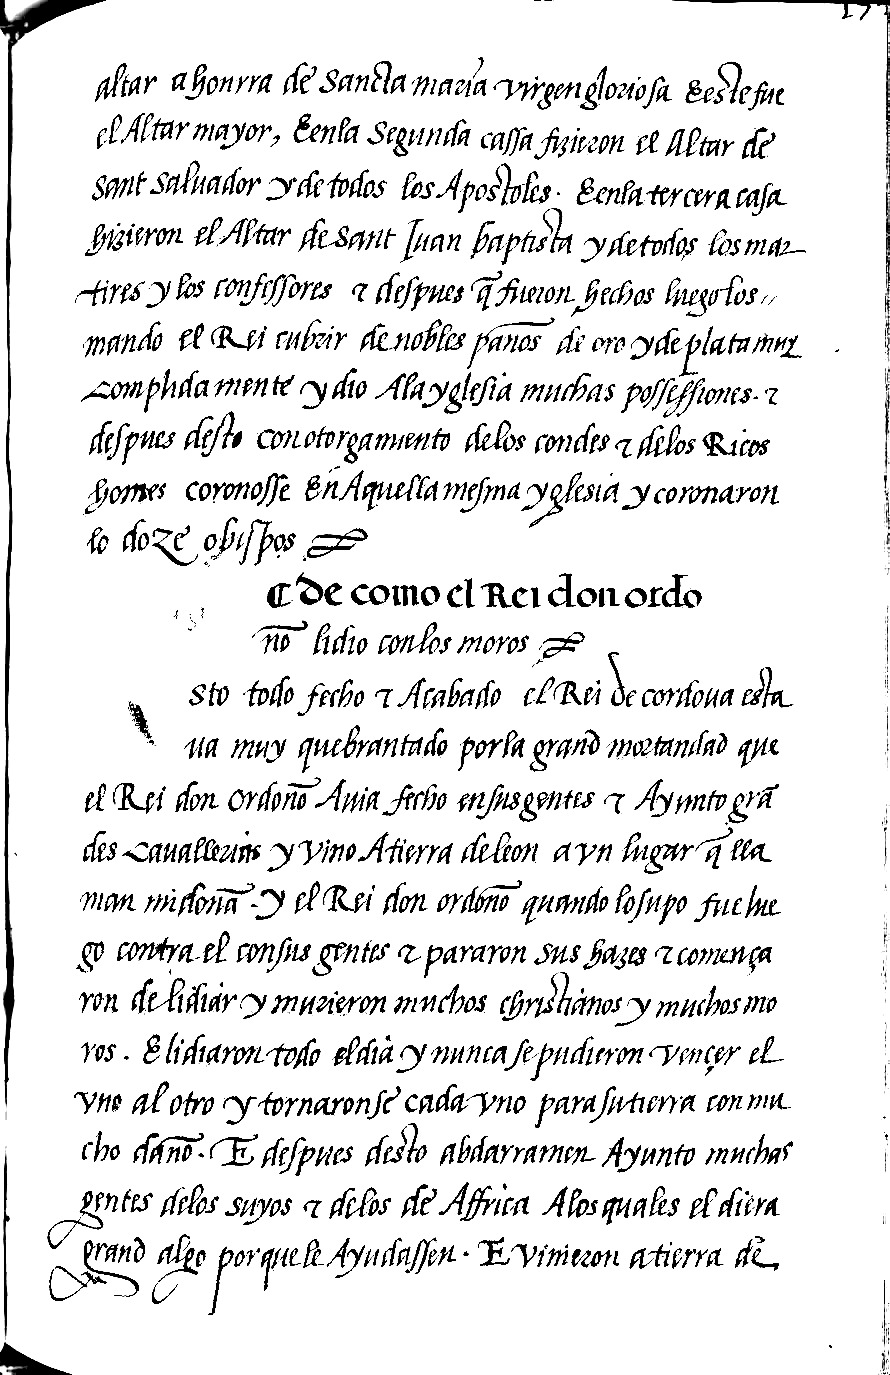 altar a honrra de Sancta maria virgen gloriosa E este fue
el Altar mayor, E enla Segunda cassa fizieron el Altar de
Sant Saluador y de todos los Apostoles. E enla tercera casa
hizieron el Altar de Sant Juan baptista y de todos los mar
tires y los confessores τ despues q̃ fueron hechos luego los
mando el Rei cubrir de nobles pan̄os de oro y de plata muy
complida mente y dio Ala yglesia muchas possessiones. τ
despues desto con otorgamiento delos condes τ delos Ricos
homes coronosse En Aquella mesma yglesia y coronaron
lo doze obispos
¶ de como el Rei don ordo
n̄o lidio con los moros
Sto todo fecho τ Acabado el Rei de cordoua esta
ua muy quebrantado por la grand mortandad que
el Rei don Ordon̄o Auia fecho en sus gentes τ Ayunto grã
des Cauallerias y Vino A tierra de leon a vn lugar q̃ lla
man midonã. y el Rei don ordon̄o quando lo supo fue lue
go contra el con sus gentes τ pararon sus hazes τ comença
ron de lidiar y murieron muchos christianos y muchos mo
ros. E lidiaron todo el dia y nunca se pudieron vençer el
vno al otro y tornaronse cada vno para su tierra con mu
cho dan̄o. E despues desto abdarramen Ayunto muchas
gentes delos suyos τ delos de Affrica Alos quales el diera
grand algo porque le Ayudassen. E Vinieron a tierra de